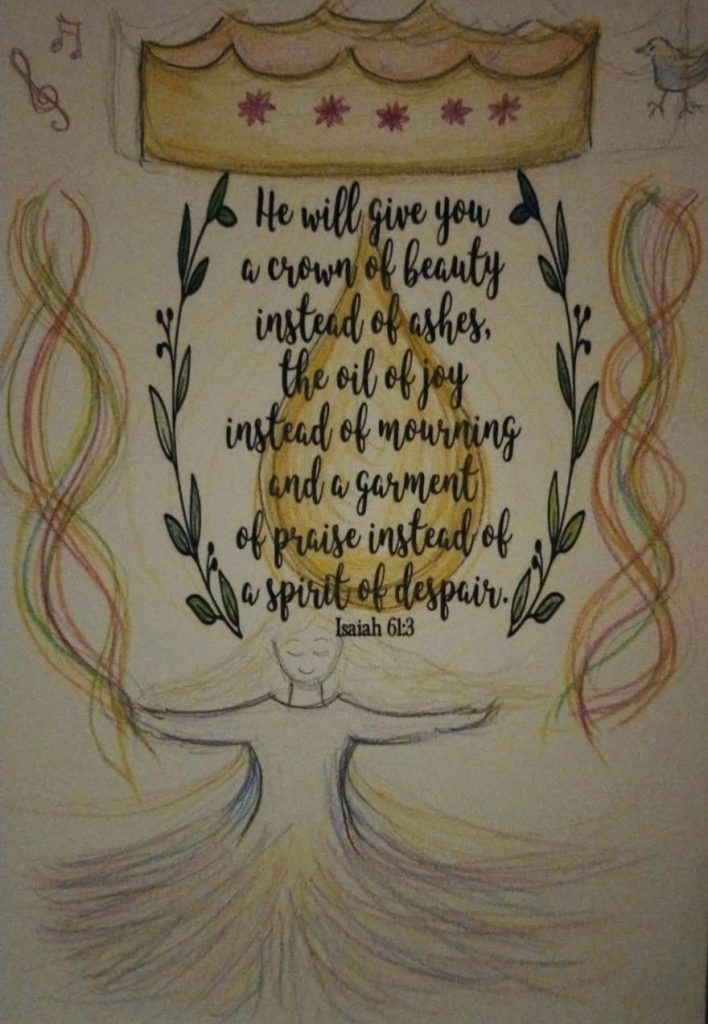 He will give you
a crown of beauty
instead of ashes,
the oil of joy
instead of mourning
and a garment
of praise instead of
a spirit of despair.
Isaiah 61:3